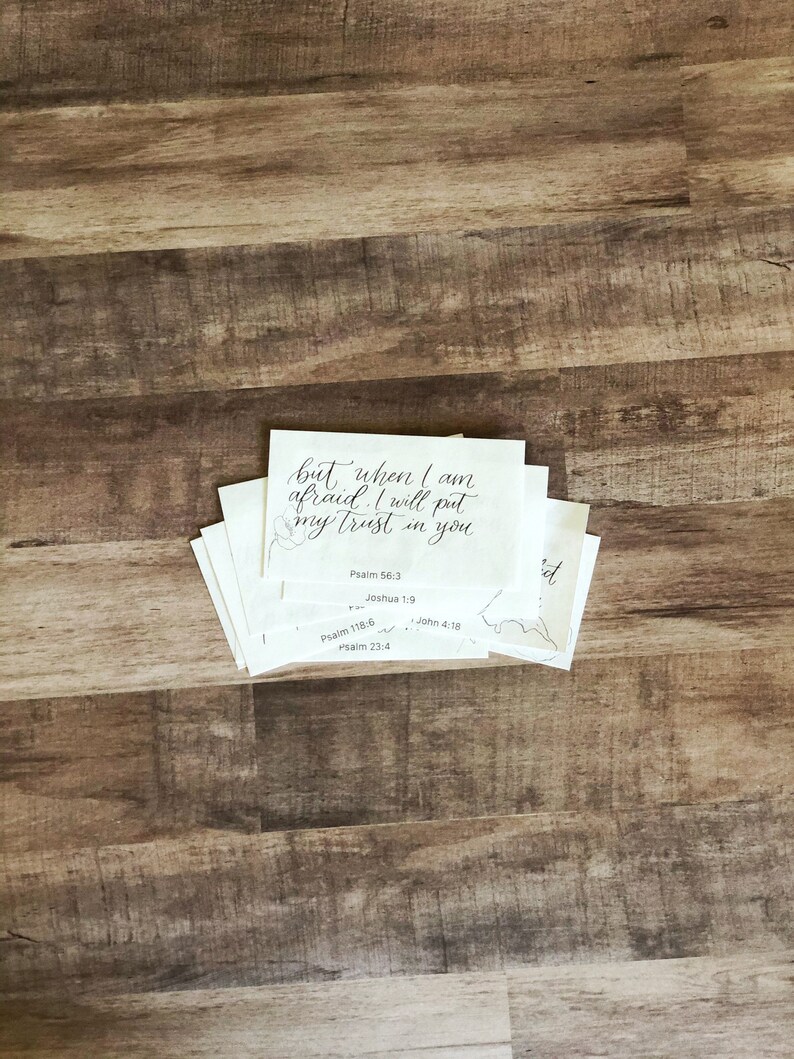 but when I am
afraid, I will put
my trust in you
Psalm 56:3
Joshua 1:9
John 4:18
Psalm 118:6
Psalm 23:4